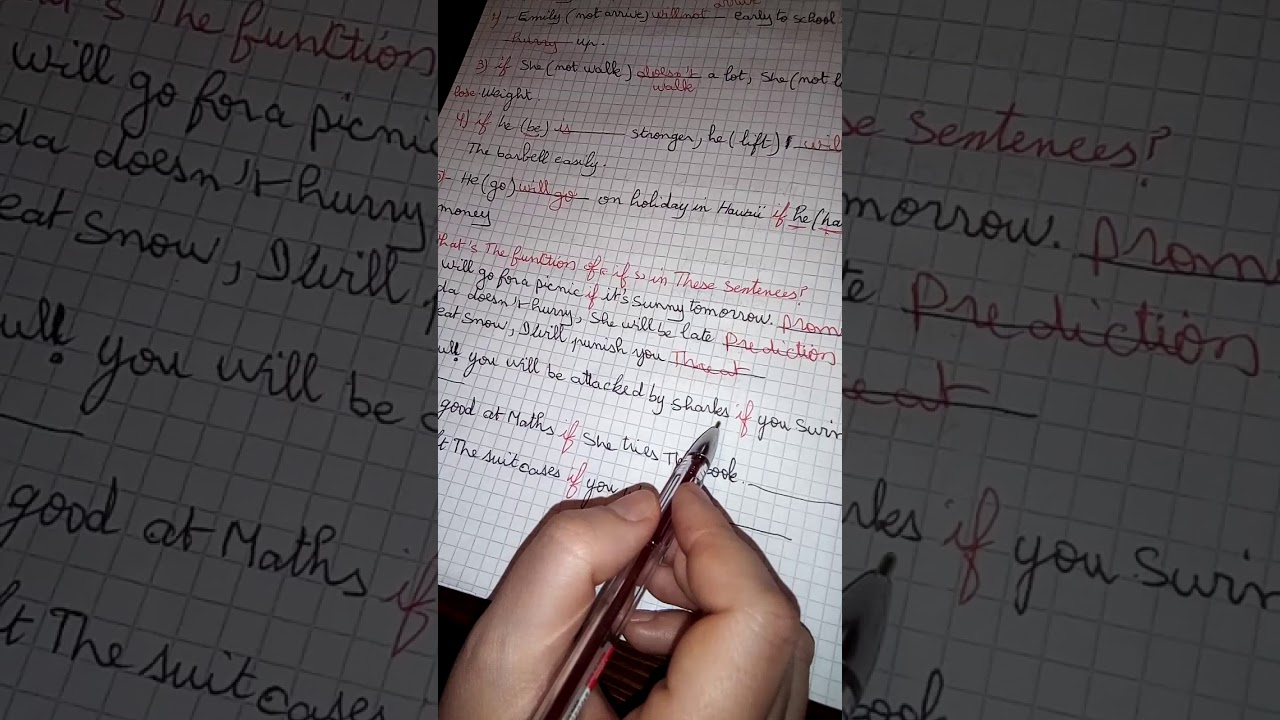 arrive
1)- Emily (not arrive) will not early to school
hurry up.
3) if She (not walk) doesn't a lot, She (not
walk
lose weight.
4) if he (be) is stronger, he (lift) will
The barbell easily.
5)- He (go) will go on holiday in Hawii if he (ha
money
hat's The funtion of « if » in These Sentences?
will go for a picnic if it's Sunny tomorrow. prom
da doesn't hurry, She will be late prediction
eat Snow, I will punish you Threat
ull! you will be attacked by sharks if you Swim
good at Maths if She tries The book.
t The suitcases if you